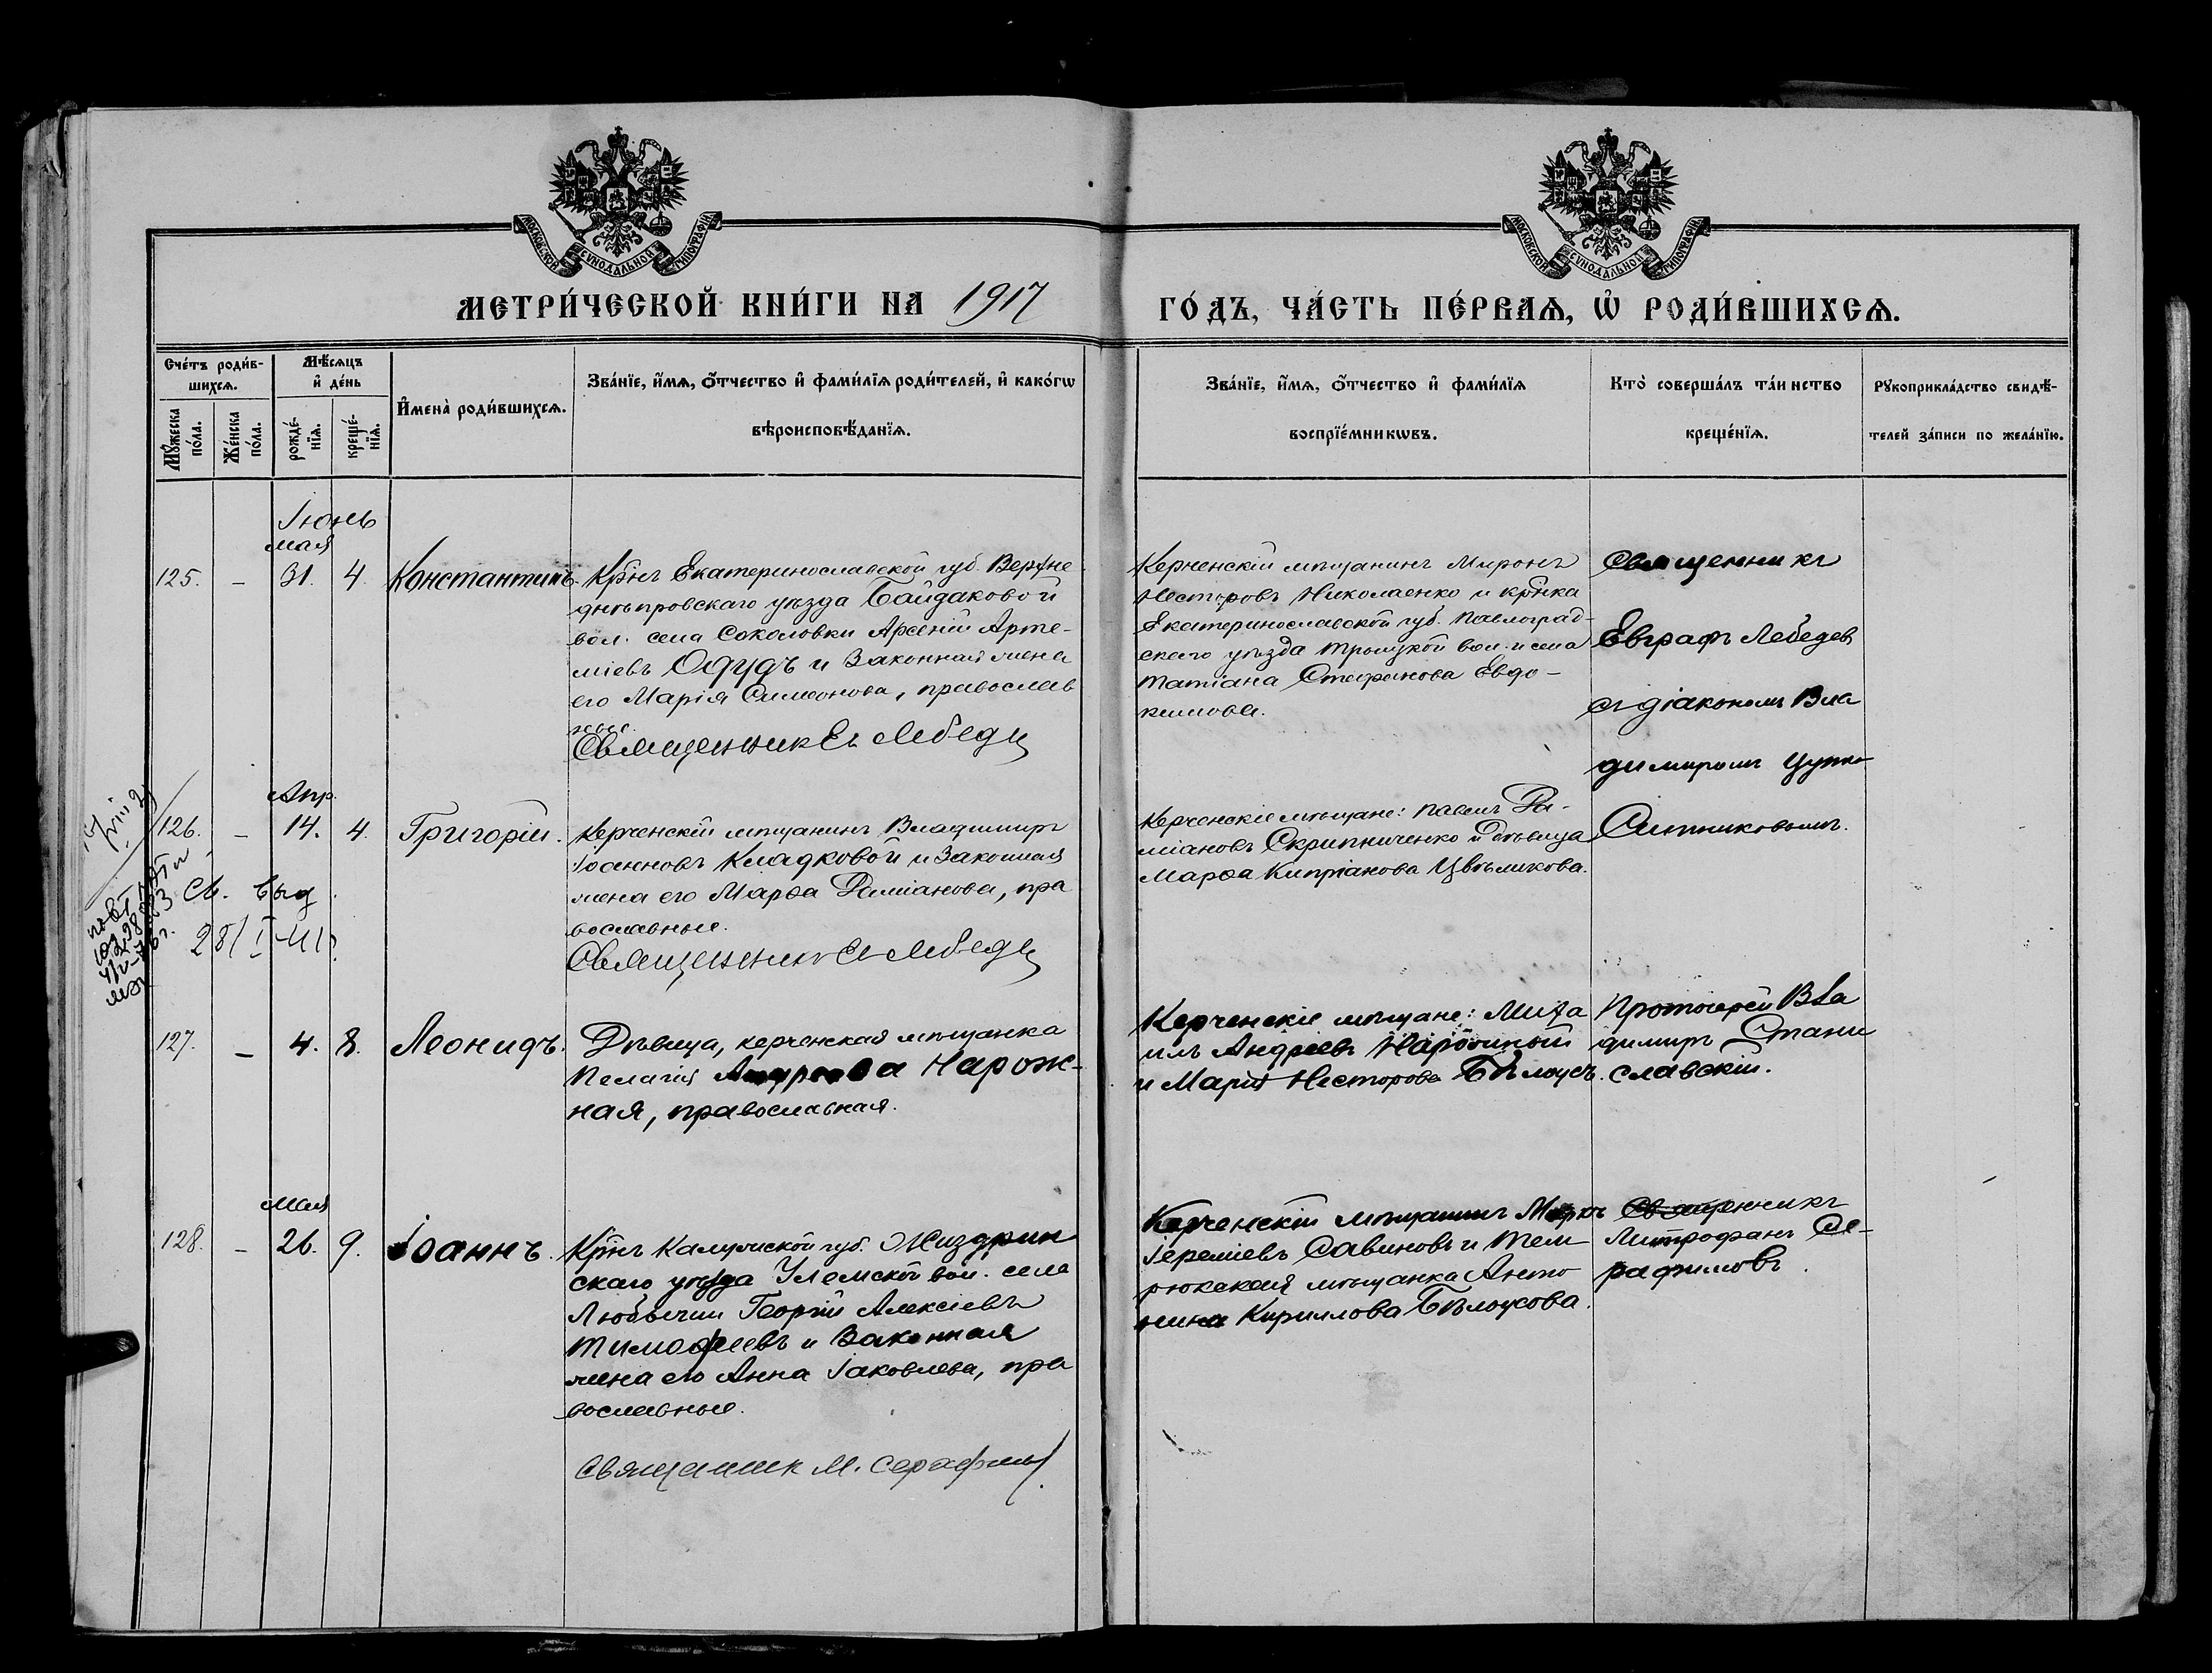 МОСКОВСКОЙ СѴНОДАЛЬНОЙ ТИПОГРАФІИ
МОСКОВСКОЙ СѴНОДАЛЬНОЙ ТИПОГРАФІИ
МЕТРИ́ЧЕСКОЙ КНИ́ГИ НА 1917
ГО́ДЪ, ЧА́СТЬ ПЕ́РВАѦ, Ѡ҆ РОДИ́ВШИХСѦ.
Сче́тъ роди́в-
шихсѧ.
Мꙋ́жеска
по́ла.
Же́нска
по́ла.
Мѣ́сѧцъ
и҆ де́нь
рожде́-
нїѧ.
креще́-
нїѧ.
И҆мена̀ роди́вшихсѧ.
Зва́нїе, и҆́мѧ, ѻ҆́тчество и҆ фами́лїѧ роди́телей, и҆ како́гѡ
вѣроисповѣ́данїѧ.
Зва́нїе, и҆́мѧ, ѻ҆́тчество и҆ фами́лїѧ
воспрїе́мникѡвъ.
Кто̀ соверша́лъ та́инство
креще́нїѧ.
Рꙋкоприкла́дство свидѣ́-
телей за́писи по жела́нїю.
Іюнь
мая
125. - 31. 4. Константинъ.
Крнъ Екатеринославской губ. Верхне
днѣпровскаго уѣзда Байдаковой
вол. села Соколовки Арсеній Арте-
міевъ Одудъ и законная жена
его Марія Симеонова, православ
ные.
Священник Ев Лебедев
Керченскій мѣщанинъ Миронъ
Несторовъ Николаенко и крнка
Екатеринославской губ. Павлоград-
скаго уѣзда Троицкой вол. и села
Татіана Стефанова Евдо-
кимова.
Священникъ
Евграфъ Лебедев
съ діакономъ Вла
димиромъ
Ситниковымъ.
Апр.
126. - 14. 4. Григорій.
Керченскій мѣщанинъ Владимиръ
Іоанновъ Кладковой и законная
жена его Марѳа Даміанова, пра
вославные.
Священникъ Ев Лебедев
Керченскіе мѣщане: Павелъ Да-
міановъ Скрипниченко и дѣвица
Марѳа Кипріанова Цвѣликова.
Св. выд
127. - 4. 8. Леонидъ.
Дѣвица, керченская мѣщанка
Пелагія Андреева Нарож-
ная, православная.
Керченскіе мѣщане: Миха
илъ Андреевъ Нарожный
и Марія Несторова Бѣлоусъ.
Протоіерей Вла
димиръ Стани
славскій.
мая
128. - 26. 9. Іоаннъ.
Крнъ Калужской губ. Жиздрин
скаго уѣзда Улемской вол. села
Любычи Георгій Алексіевъ
Тимофеевъ и законная
жена его Анна Іаковлева, пра
вославные.
Священник М. Серафимов
Керченскій мѣщанинъ Маркъ
Іереміевъ Савиновъ и Тем
рюкская мѣщанка Анто
нина Кириллова Бѣлоусова.
Священникъ
Митрофанъ Се-
рафимовъ.